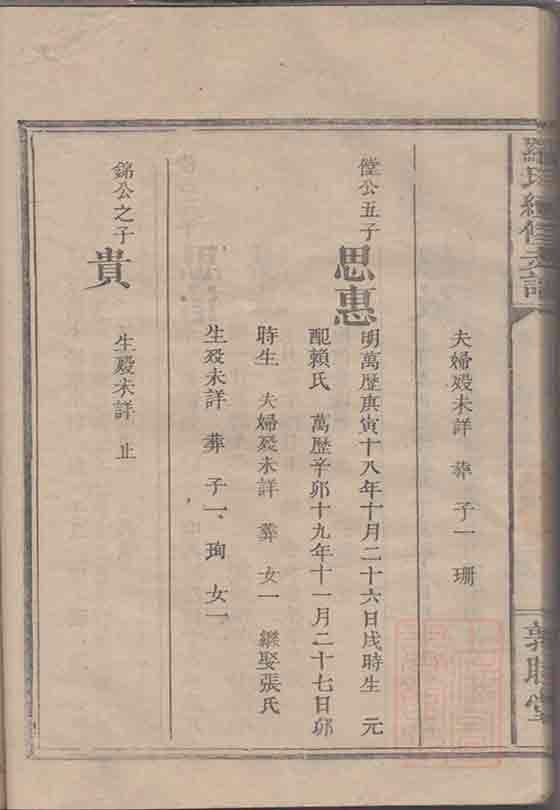 夫婦殁未詳 葬 子一 珊
傥公五子
思惠
明萬歷庚寅十八年十月二十六日戌時生 元
配賴氏 萬歷辛卯十九年十一月二十七日卯
時生 夫婦殁未詳 葬 女一 繼娶張氏
生殁未詳 葬 子一、珣 女一
錦公之子
貴
生殁未詳 止